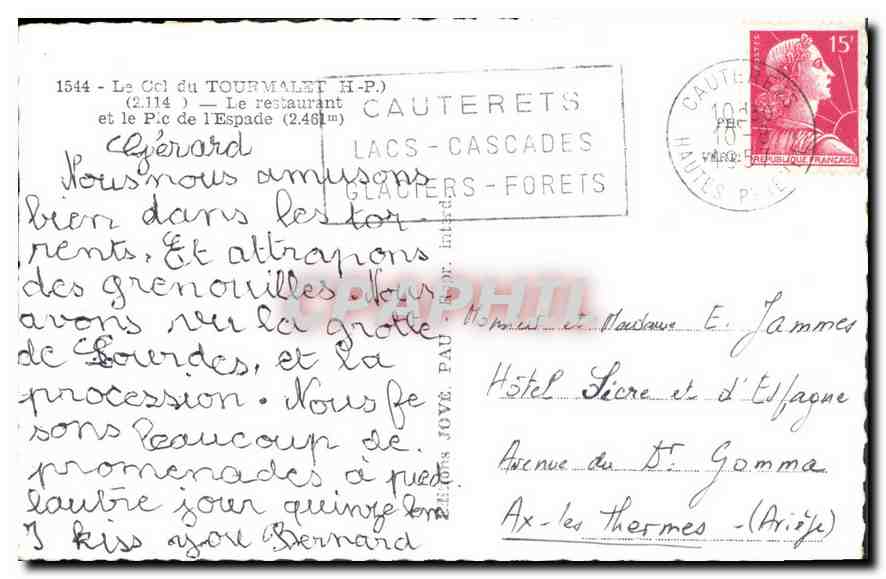 1544 - Le Col du TOURMALET H-P.)
(2.114 ) — Le restaurant
et le Pic de l'Espade (2.461m)
CAUTERETS
LACS - CASCADES
GLACIERS - FORETS
CAUTERETS
HAUTES PYRENEES
POSTES
15F
REPUBLIQUE FRANÇAISE
Gérard
Nous nous amusons
bien dans les tor-
rents. Et attrapons
des grenouilles. Nous
avons vu la grotte
de Lourdes, et la
procession. Nous fe
sons beaucoup de
promenades à pied.
lautre jour quinze km
I kiss you Bernard
Editions JOVÉ, PAU Repr. interd.
CPAPHIL
Monsieur et Madame E. Jammes
Hôtel Sicre et d'Espagne
Avenue du Dr Gomma
Ax-les Thermes - (Ariège)